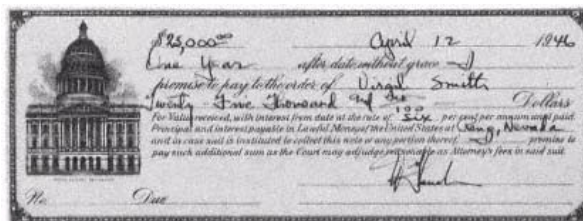 $25,000.00 April 12 1946
One Year after date without grace I
promise to pay to the order of Virgil Smith
Twenty-Five Thousand and no/100 Dollars
For Value received, with interest from date at the rate of six per cent per annum until paid.
Principal and interest payable in Lawful Money of the United States at Reno, Nevada
and in case suit is instituted to collect this note or any portion thereof I promise to
pay such additional sum as the Court may adjudge reasonable as Attorney's fees in said suit.
No. Due